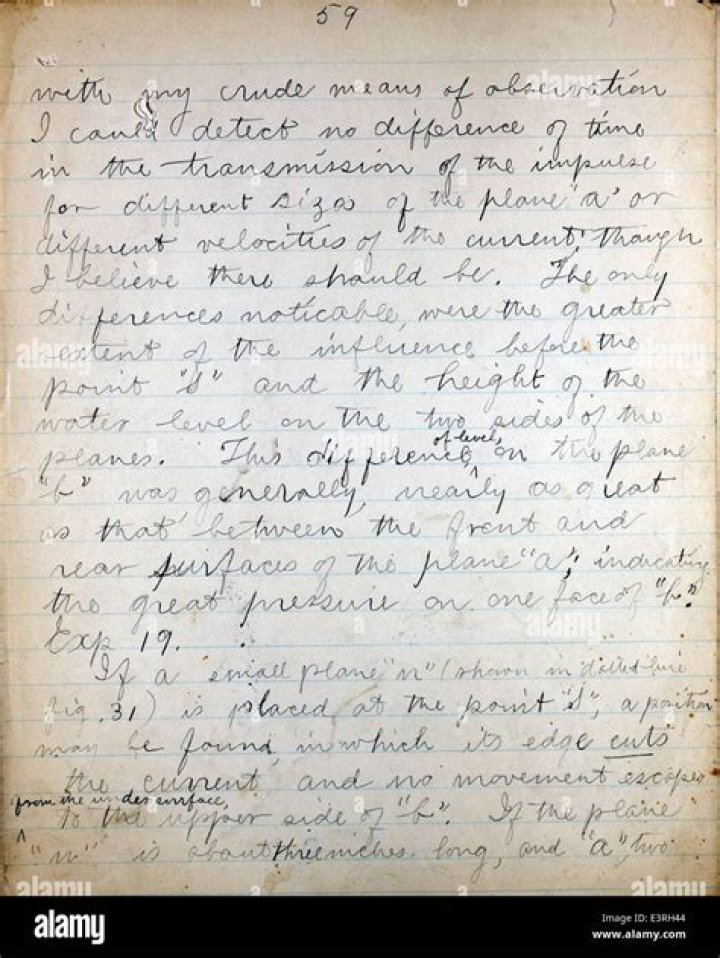 59
with my crude means of observation
I could detect no difference of time
in the transmission of the impulse
for different sizes of the plane "a" or
different velocities of the current, though
I believe there should be. The only
differences noticable, were the greater
extent of the influence before the
point "S" and the height of the
water level on the two sides of the
planes. This difference of level, on the plane
"b" was, generally, nearly as great
as that between the front and
rear surfaces of the plane "a", indicating
the great pressure on one face of "b".
Exp 19.
If a small plane "n" (shown in dotted line
fig. 31) is placed at the point "S", a position
may be found in which its edge cuts
the current and no movement escapes
from the under surface,
to the upper side of "b". If the plane
"n" is about three inches long, and "a", two
alamy
Image ID: E3RH44
www.alamy.com